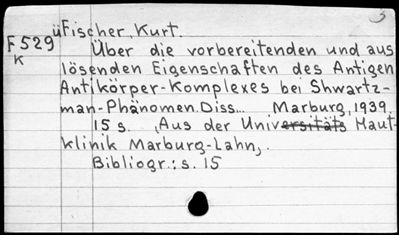 üFischer, Kurt.
F529
K
Über die vorbereitenden und aus
lösenden Eigenschaften des Antigen
Antikörper-Komplexes bei Shwartz-
man-Phänomen. Diss... Marburg, 1939.
15 s. (Aus der Universitäts Haut-
klinik Marburg-Lahn).
Bibliogr.: s. 15